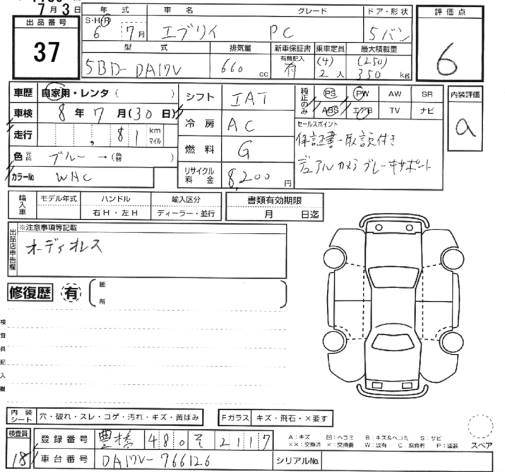 7月3日
出品番号 37
年式 S・H・R 6年 7月
車名 エブリイ
グレード PC
ドア・形状 5バン
評価点 6
型式 5BD-DA17V
排気量 660cc
新車保証書 有
乗車定員 (4) 2人
最大積載量 (250) 350kg
車歴 自家用・レンタ( )
車検 8年 7月(30日)
走行 81 km マイル
色 ブルー→
カラーNo WHC
シフト IAT
冷房 AC
燃料 G
リサイクル料金 8,200円
純正のみ PS PW AW SR
ABS エアB TV ナビ
セールスポイント
保証書・取説付き
デュアルカメラブレーキサポート
内装評価 a
輸入車 モデル年式 ハンドル 輸入区分
右H・左H ディーラー・並行
書類有効期限
月 日迄
出品店申告欄 ※注意事項等記載
オーディオレス
修復歴 有 箇所
検査員記入欄
内装シート 穴・破れ・スレ・コゲ・汚れ・キズ・黄ばみ
Fガラス キズ・飛石・×要す
検査員 18
登録番号 豊橋 480 そ 2117
車台番号 DA17V-766126
シリアルNo.
A:キズ 凹:ヘコミ B:キズ&ヘコミ S:サビ
スペア